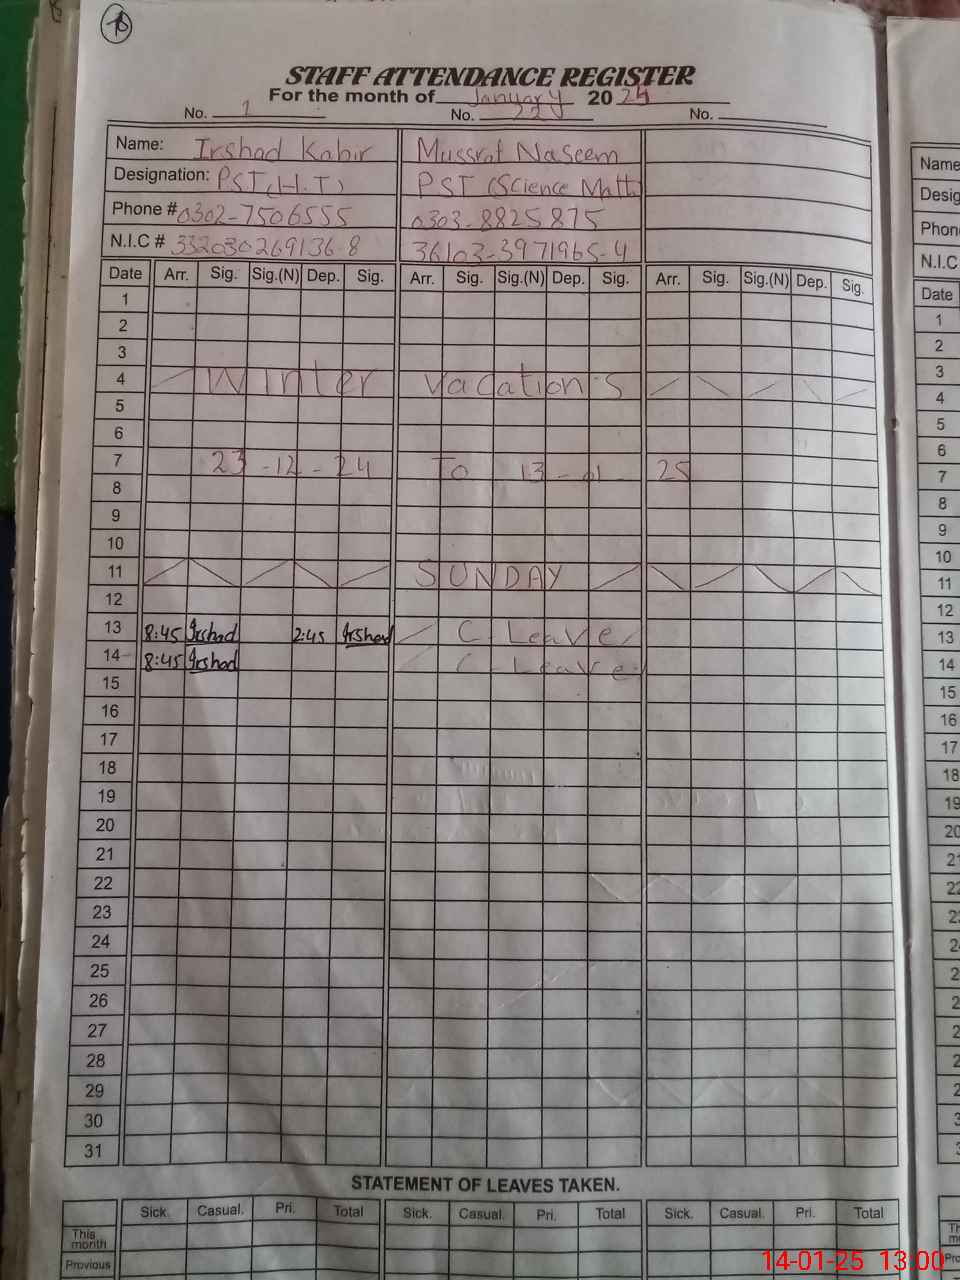 STAFF ATTENDANCE REGISTER
For the month of January 20 25
No. 1 No. 22 No.
Name: Irshad Kabir Mussrat Naseem
Designation: PST (H.T) PST (Science Math
Phone # 0302-7506555 0303-8825875
N.I.C # 332030269136-8 36103-3971965-4
Date Arr. Sig. Sig.(N) Dep. Sig. Arr. Sig. Sig.(N) Dep. Sig. Arr. Sig. Sig.(N) Dep. Sig.
1
2
3
4 Winter Vacations
5
6
7 23-12-24 To 13-01-25
8
9
10
11 SUNDAY
12
13 8:45 Irshad 2:45 Irshad C-Leave
14 8:45 Irshad C-Leave
15
16
17
18
19
20
21
22
23
24
25
26
27
28
29
30
31
STATEMENT OF LEAVES TAKEN.
Sick. Casual. Pri. Total Sick. Casual. Pri. Total Sick. Casual. Pri. Total
This month
Provious
Name
Desig
Phon
N.I.C
Date
1
2
3
4
5
6
7
8
9
10
11
12
13
14
15
16
17
18
19
20
14-01-25 13:00